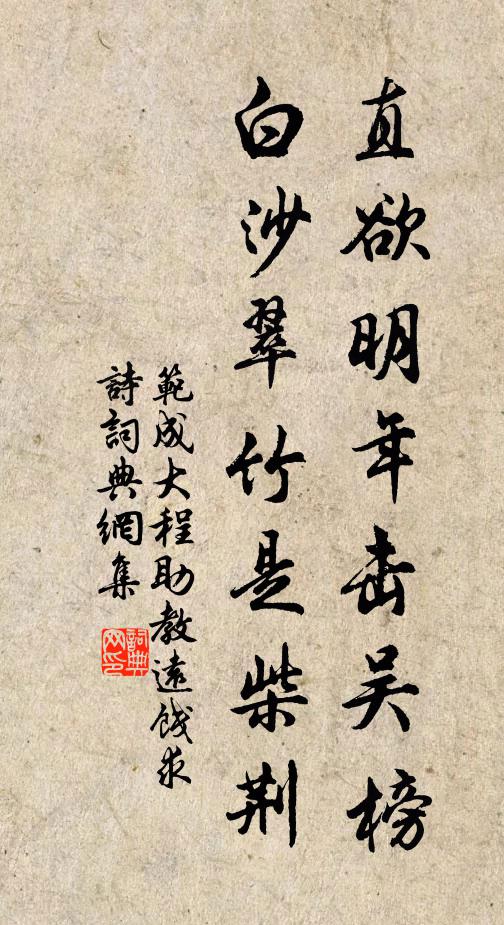 直欲明年击吴榜
白沙翠竹是柴荆
範成大程助教遠餞求
詩詞典網集
詞典网印